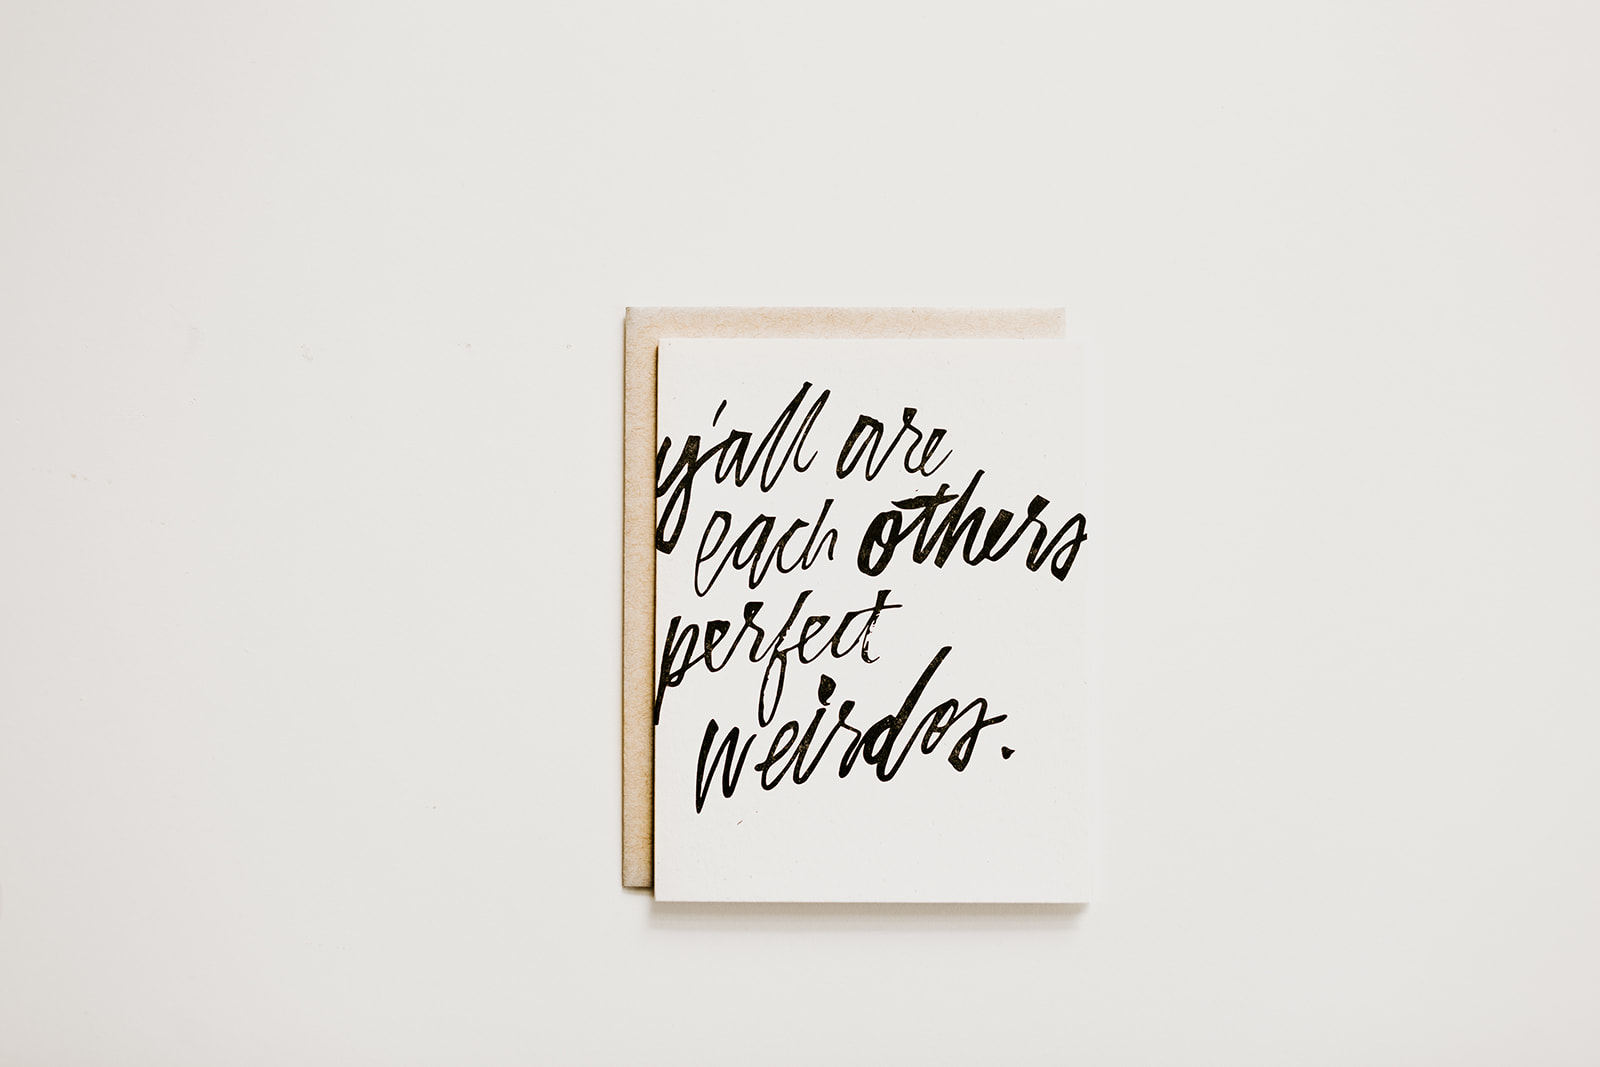 y'all are
each others
perfect
weirdos.